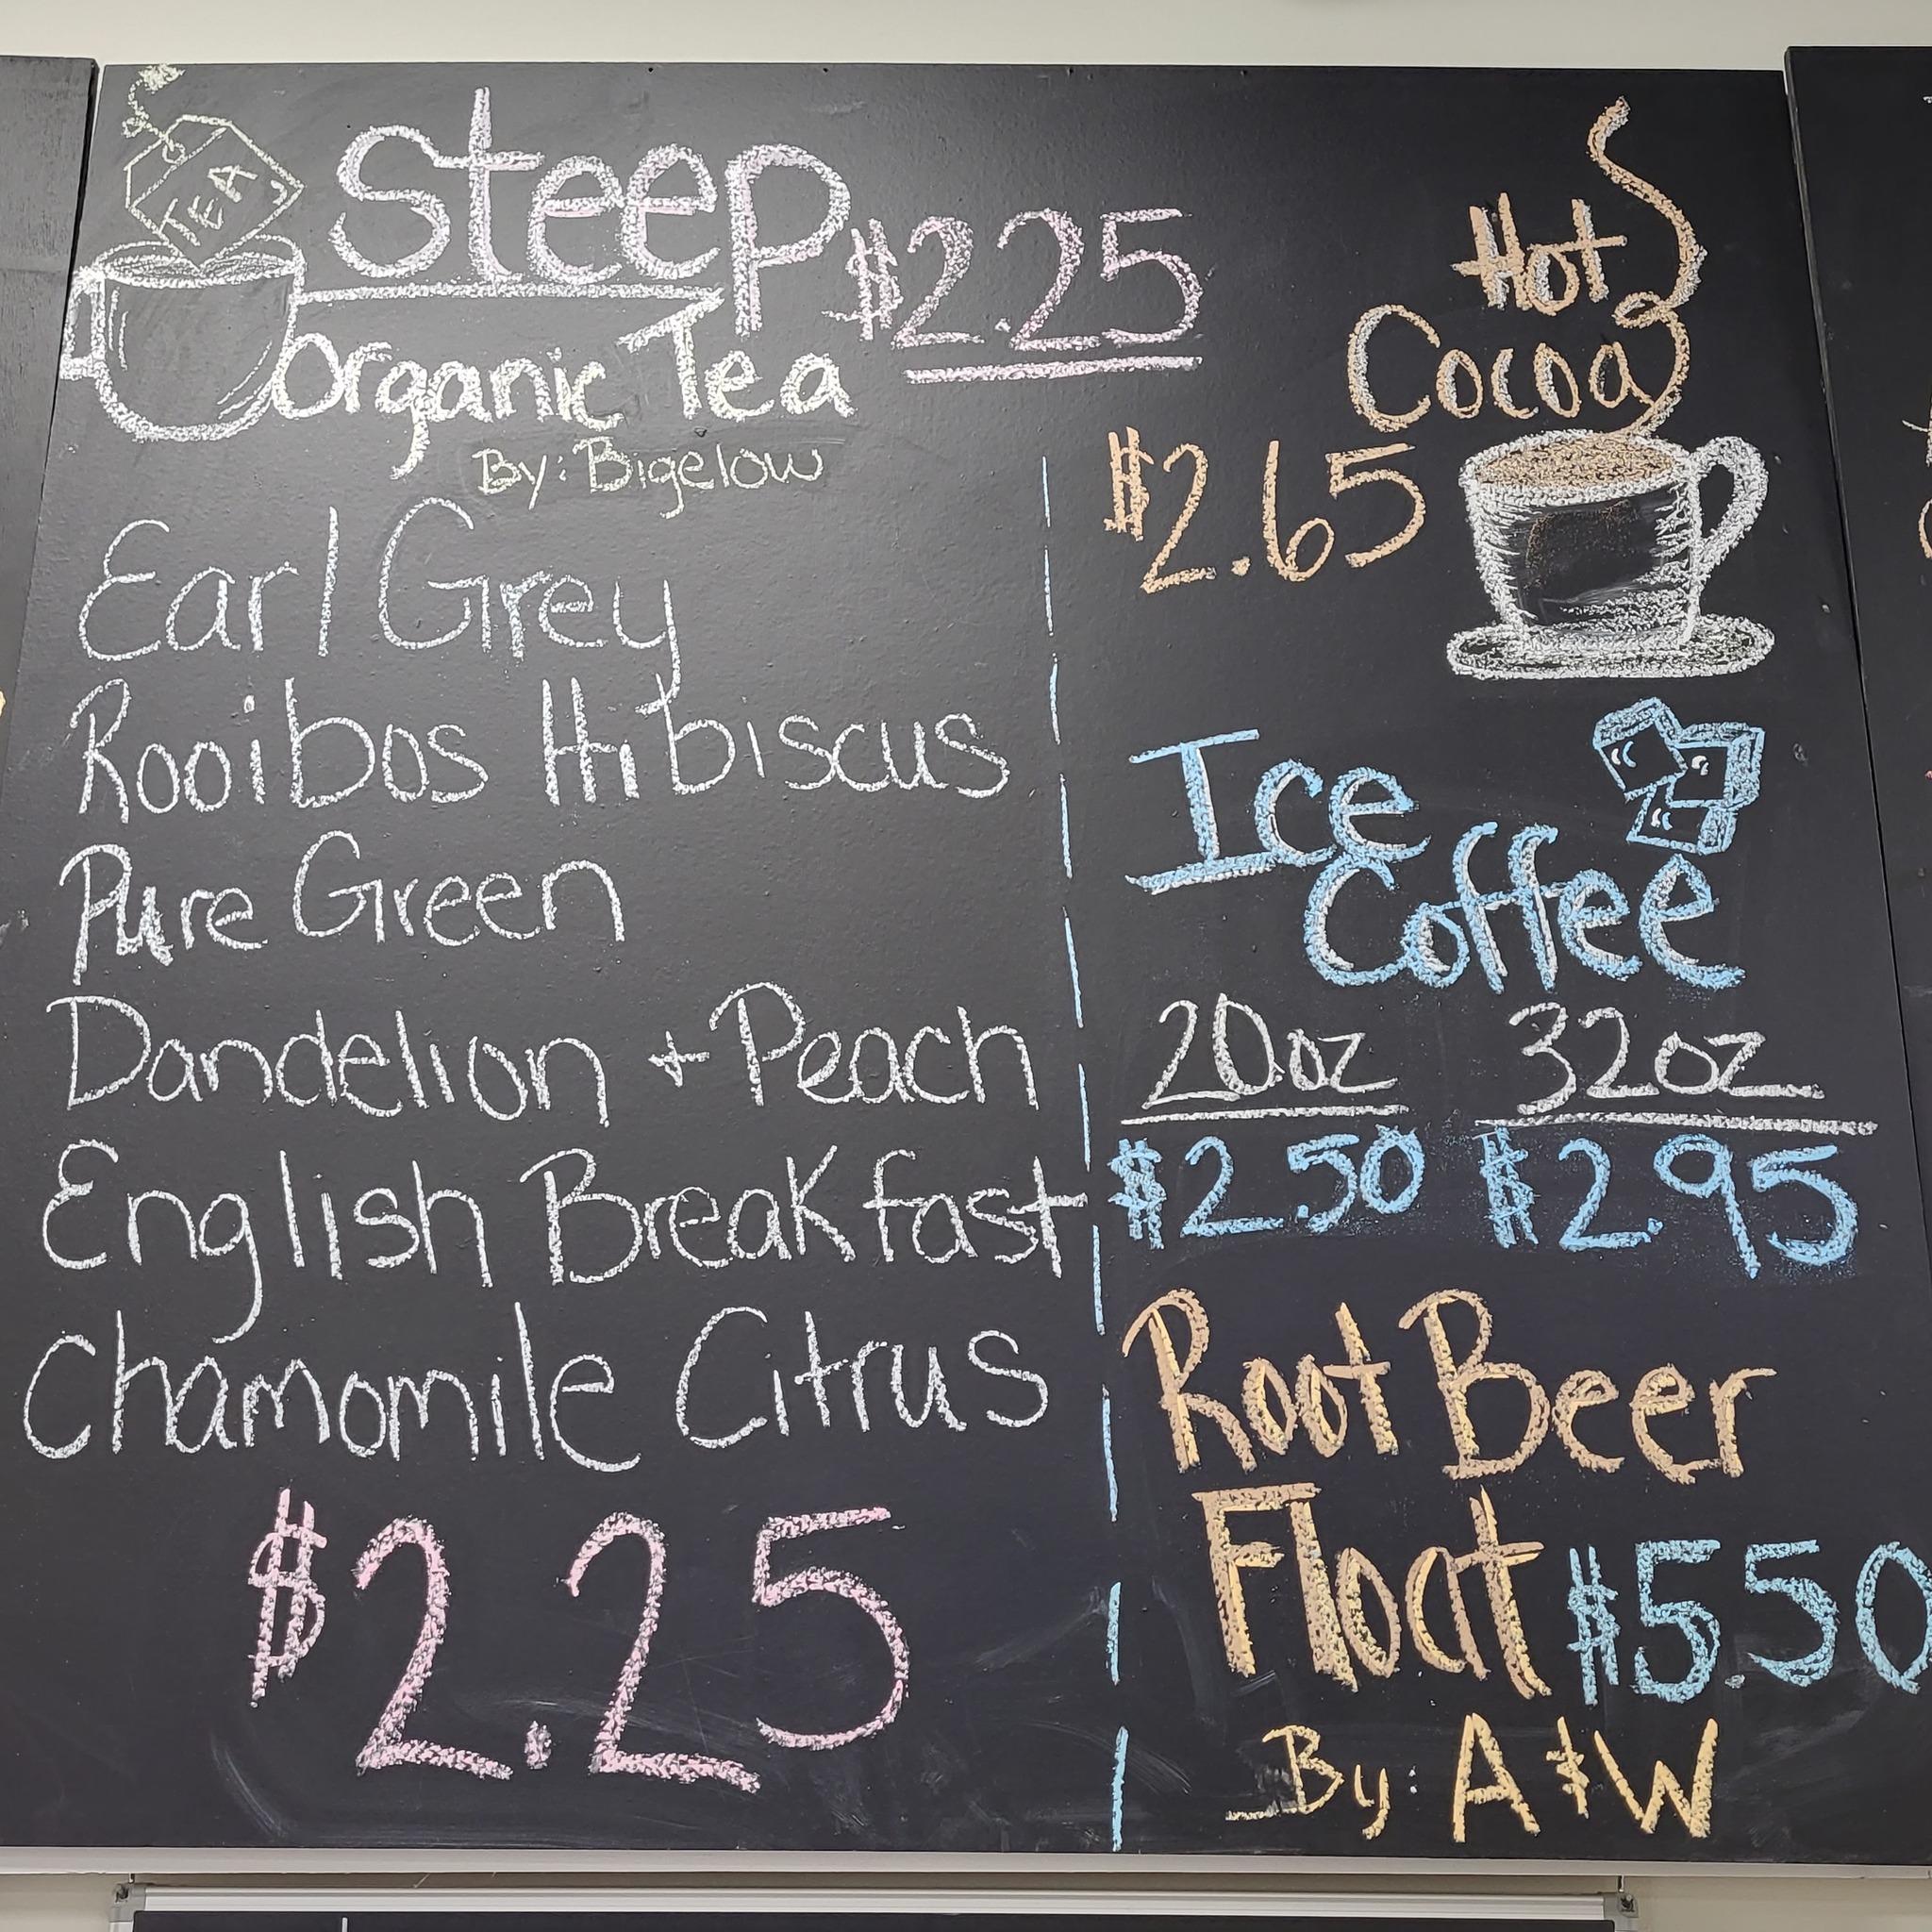 TEA
Steep $2.25
Organic Tea
By: Bigelow
Earl Grey
Rooibos Hibiscus
Pure Green
Dandelion + Peach
English Breakfast
Chamomile Citrus
$2.25
Hot
Cocoa
$2.65
Ice
Coffee
20oz 32oz
$2.50 $2.95
Root Beer
Float $5.50
By: A & W